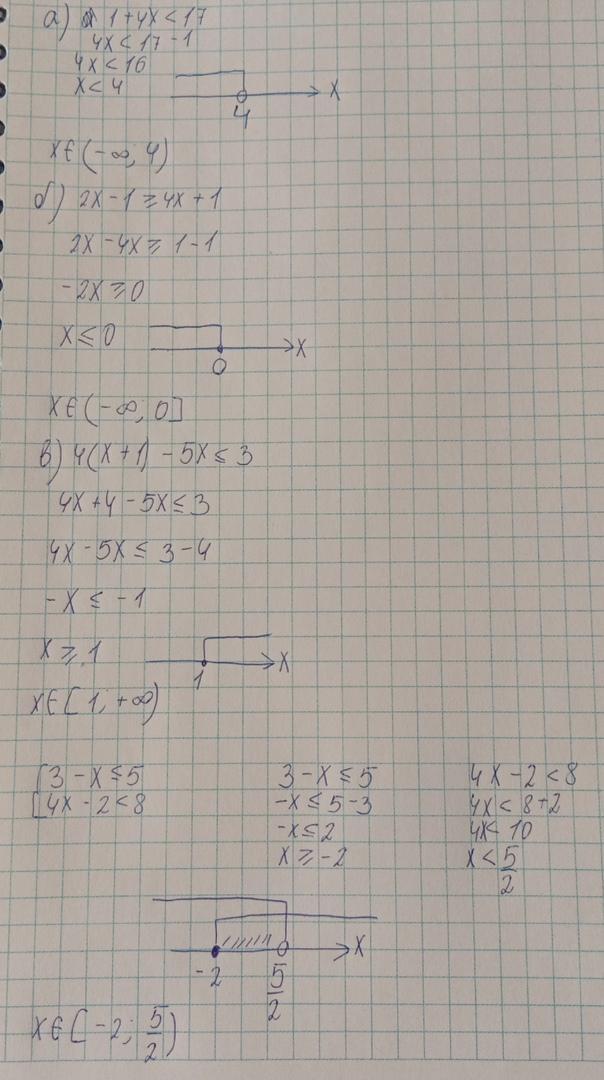 а) 1+4x<17
4x<17-1
4x<16
x<4
x
4
x∈(-∞; 4)
б) 2x-1≥4x+1
2x-4x≥1-1
-2x≥0
x≤0
x
0
x∈(-∞; 0]
в) 4(x+1)-5x≤3
4x+4-5x≤3
4x-5x≤3-4
-x≤-1
x≥1
x
1
x∈[1; +∞)
[3-x≤5
[4x-2<8
3-x≤5
-x≤5-3
-x≤2
x≥-2
4x-2<8
4x<8+2
4x<10
x<5/2
x
-2
5/2
x∈[-2; 5/2)